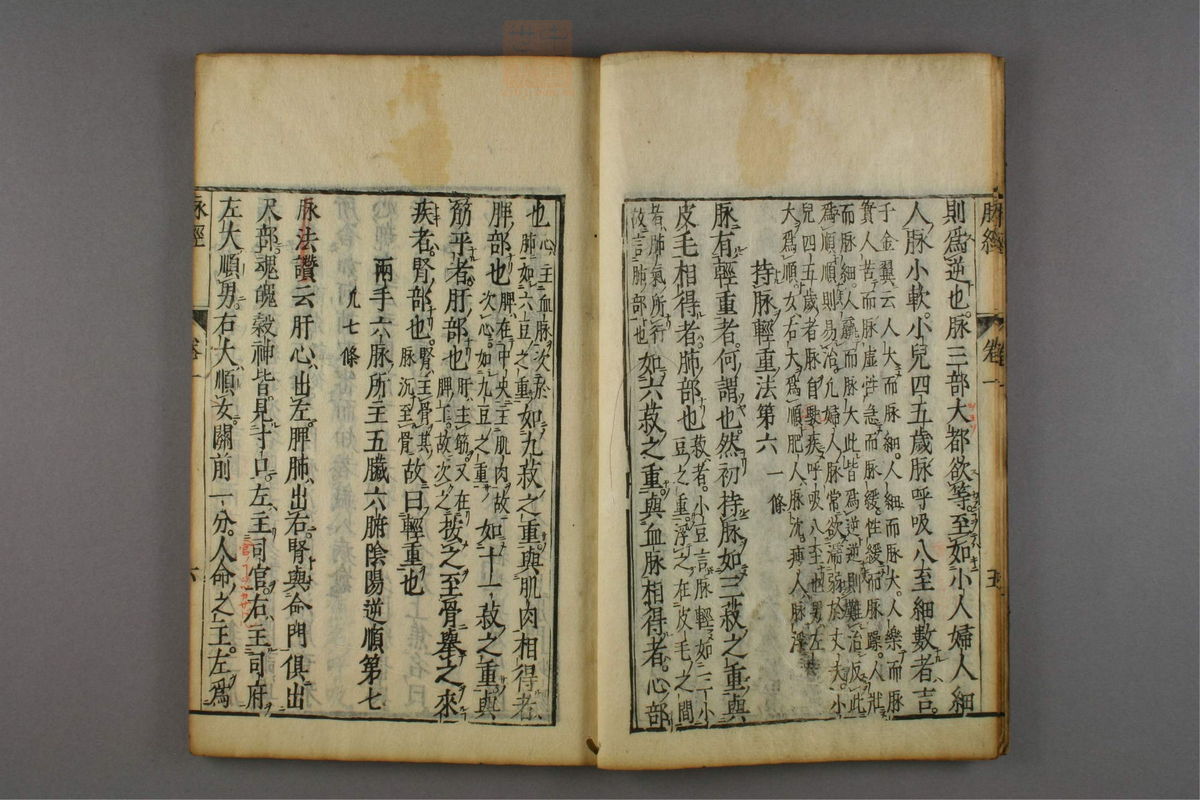 脉經 卷一 五
則爲逆也。脉三部大都欲等。至如小人婦人細
人脉小軟。小兒四五歲脉呼吸八至細數者吉。
千金翼云人大而脉細。人細而脉大。人樂而脉
實人苦而脉虛性急而脉緩。性緩而脉躁。人壯
而脉細。人羸而脉大此皆爲逆逆則難治反此
爲順順則易治凢婦人脉常欲濡弱於丈夫。小
兒四五歲者脉自駛疾呼吸八至也男左
大爲順。女右大爲順肥人脉沈瘦人脉浮
持脉輕重法第六 一條
脉有輕重者。何謂也。然初持脉如三菽之重與
皮毛相得者。肺部也
菽者。小豆言脉輕如三小
豆之重。浮之在皮毛之間
者。肺氣所行
故言肺部也
如六菽之重與血脉相得者。心部
也
心主血脉次於
肺如六豆之重
如九菽之重與肌肉相得者
脾部也
脾在中央主肌肉故
次心。如九豆之重
如十二菽之重與
筋平者。肝部也
肝主筋。又在
脾下。故次之
按之至骨舉之來
疾者。腎部也。
腎主骨其
脉沉至骨
故曰輕重也
兩手六脉所主五臟六腑陰陽逆順第七
凢七條
脉法讚云肝心出左。脾肺出右腎與命門俱出
尺部魂魄穀神皆見寸口。左主司官。右主司府
左大順男。右大順女。關前一分。人命之主。左爲
脉經 卷一 六